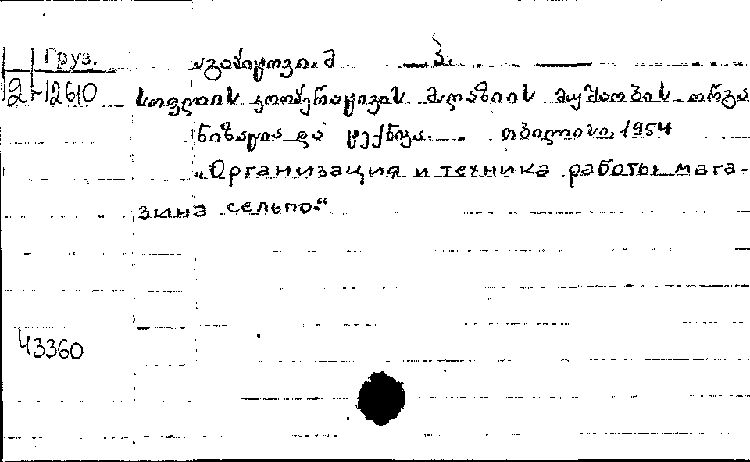 Груз.
2-12610
სოფლის კოოპერატივის მაღაზიის მუშაობის ორგა
ნიზაცია და ტექნიკა. თბილისი, 1954
„Организация и техника работы мага-
зина сельпо“
43360